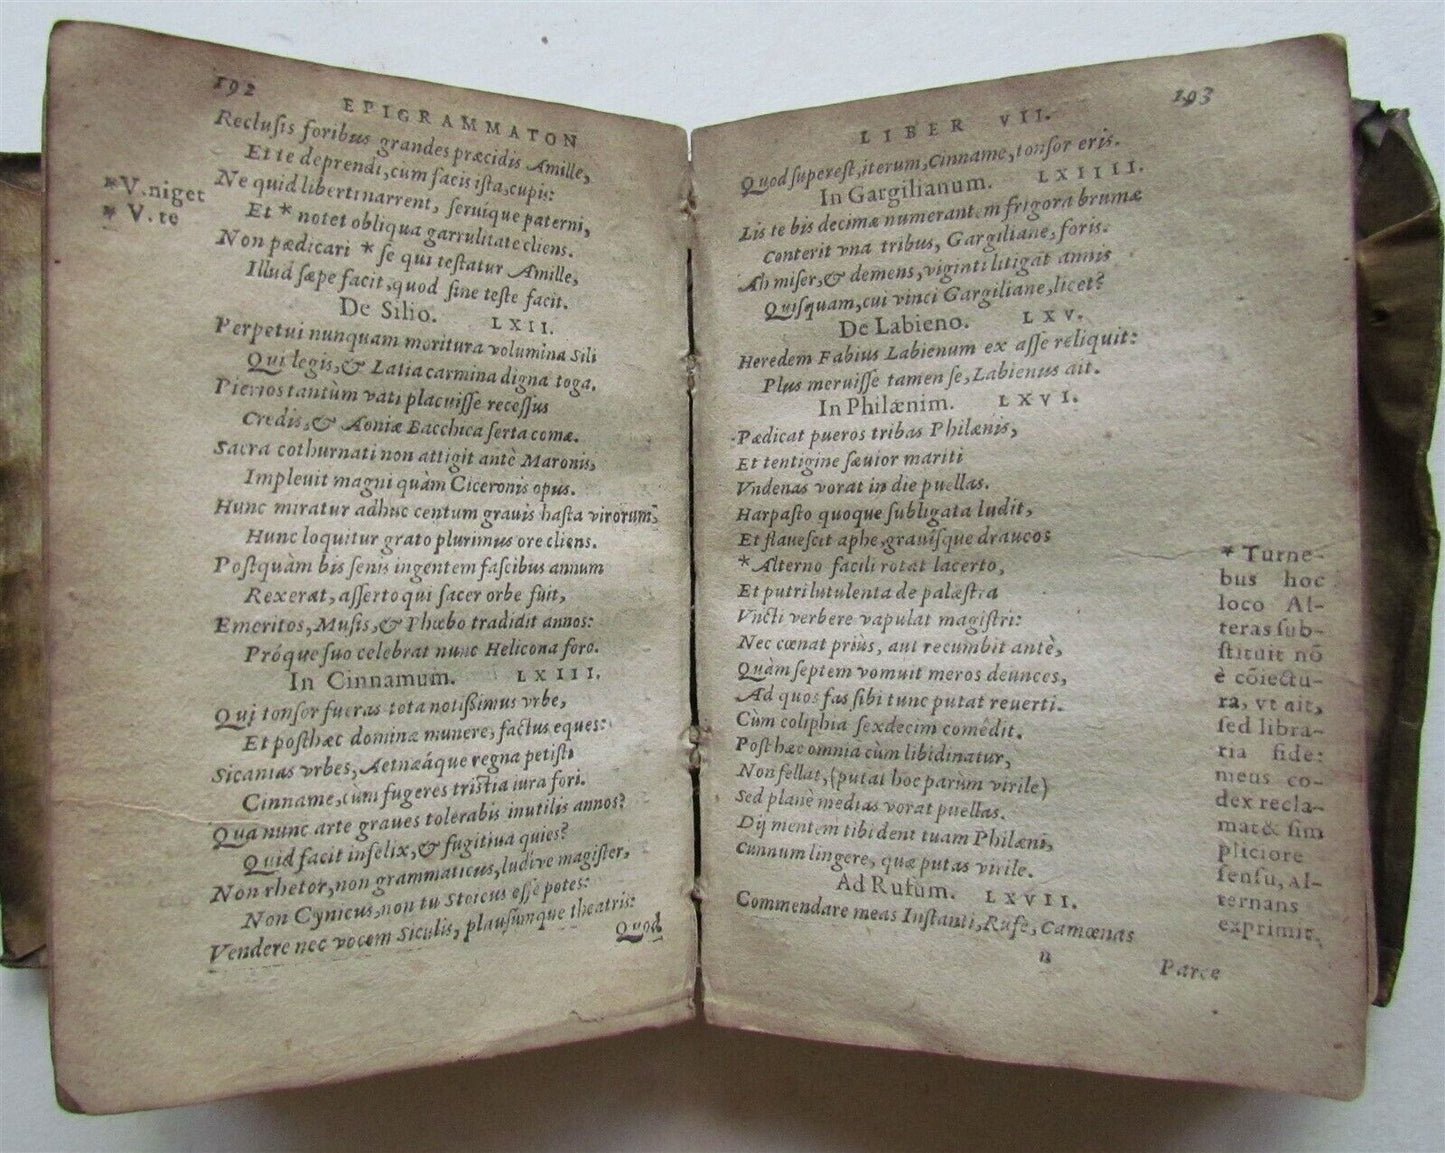 192
EPIGRAMMATON
Reclusis foribus grandes præcidis Amille,
Et te deprendi, cum facis ista, cupis:
Ne quid liberti narrent, seruique paterni,
Et * notet obliqua garrulitate cliens.
Non pædicari * se qui testatur Amille,
Illud sæpe facit, quod sine teste facit.
* V. niget
* V. te
De Silio. LXII.
Perpetui nunquam moritura volumina Sili
Qui legis, & Latia carmina digna toga.
Pierios tantùm vati placuisse recessus
Credis, & Aoniæ Bacchica serta comæ.
Sacra cothurnati non attigit antè Maronis,
Impleuit magni quàm Ciceronis opus.
Hunc miratur adhuc centum grauis hasta virorum,
Hunc loquitur grato plurimus ore cliens.
Postquàm bis senis ingentem fascibus annum
Rexerat, asserto qui sacer orbe fuit,
Emeritos, Musis, & Phœbo tradidit annos:
Próque suo celebrat nunc Helicona foro.
In Cinnamum. LXIII.
Qui tonsor fueras tota notissimus vrbe,
Et posthæc dominæ munere, factus eques:
Sicanias vrbes, Aetnæáque regna petisti
Cinname, cùm fugeres tristia iura fori.
Qua nunc arte graues tolerabis inutilis annos?
Quid facit infelix, & fugitiua quies?
Non rhetor, non grammaticus, ludive magister,
Non Cynicus, non tu Stoicus esse potes:
Vendere nec vocem Siculis, plausúmque theatris:
Quod
193
LIBER VII.
Quod superest, iterum, Cinname, tonsor eris.
In Gargilianum. LXIIII.
Lis te bis decimæ numerantem frigora brumæ
Conterit vna tribus, Gargiliane, foris.
Ah miser, & demens, viginti litigat annis
Quisquam, cui vinci Gargiliane, licet?
De Labieno. LXV.
Heredem Fabius Labienum ex asse reliquit:
Plus meruisse tamen se, Labienus ait.
In Philænim. LXVI.
Pædicat pueros tribas Philænis,
Et tentigine sæuior mariti
Vndenas vorat in die puellas.
Harpasto quoque subligata ludit,
Et flauescit aphe, grauísque draucos
* Alterno facili rotat lacerto,
Et putri lutulenta de palæstra
Vncti verbere vapulat magistri:
Nec cœnat priùs, aut recumbit antè,
Quàm septem vomuit meros deunces,
Ad quos fas sibi tunc putat reuerti.
Cùm coliphia sexdecim comêdit.
Post hæc omnia cùm libidinatur,
Non fellat, (putat hoc parùm virile)
Sed planè medias vorat puellas.
Dij mentem tibi dent tuam Philæni,
Cunnum lingere, quæ putas virile.
* Turne-
bus hoc
loco Al-
teras sub-
stituit nõ
è cõiectu-
ra, vt ait,
sed libra-
ria fide:
meus co-
dex recla-
mat & sim
pliciore
sensu, Al-
ternans
exprimit.
Ad Rufum. LXVII.
Commendare meas Instanti, Rufe, Camœnas
n
Parce